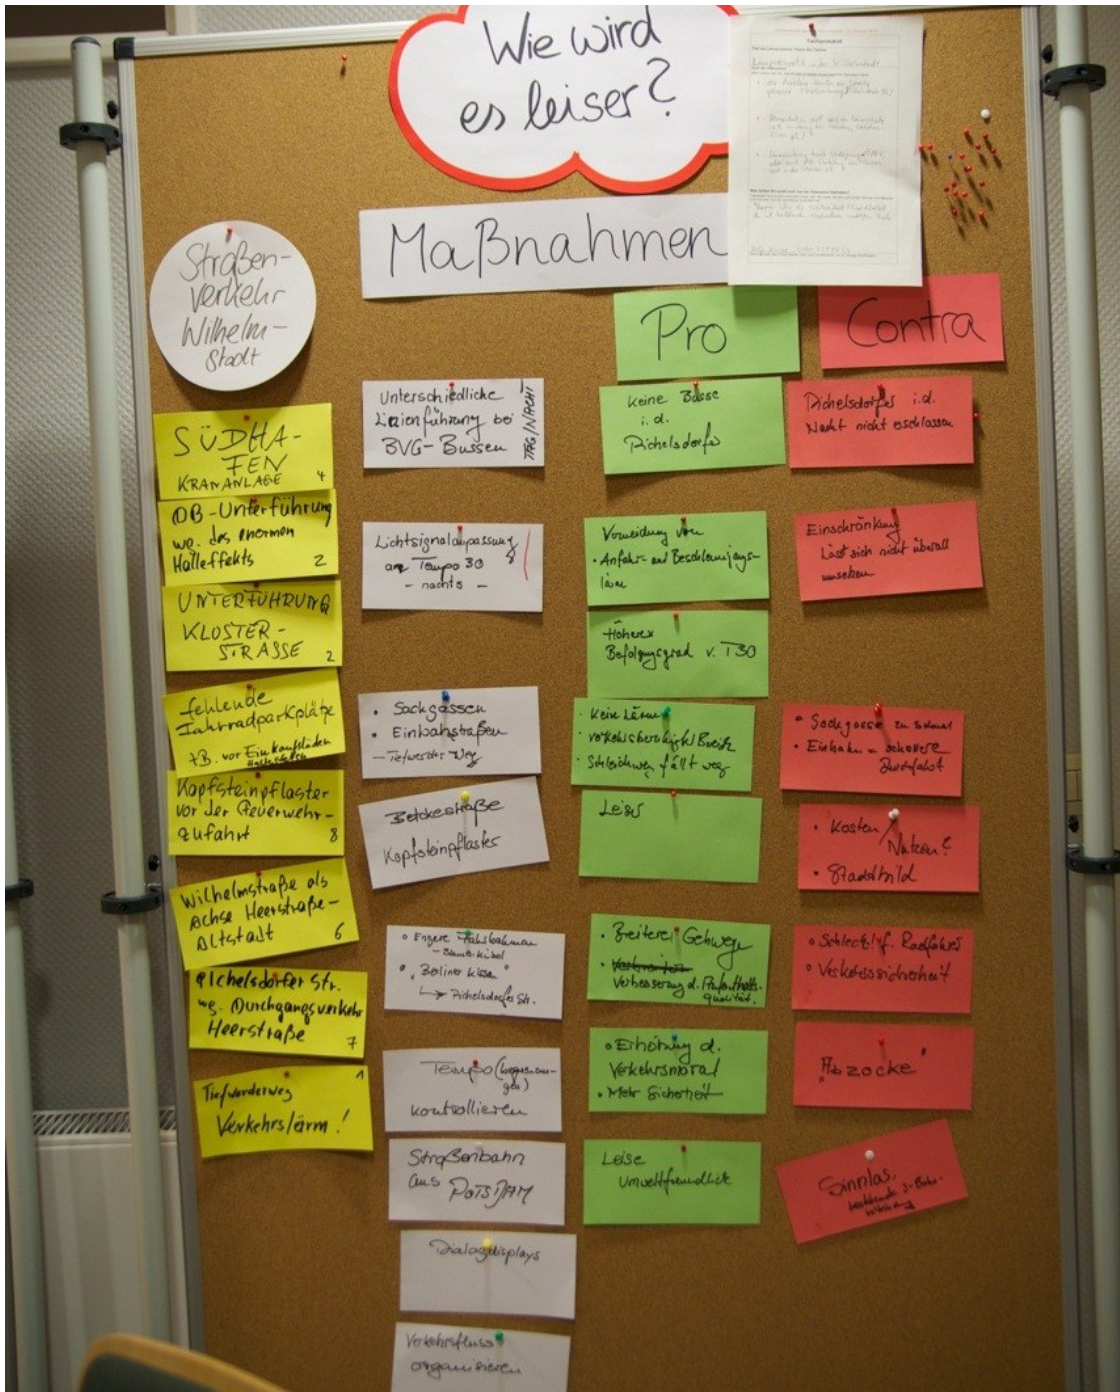 Wie wird
es leiser?
Maßnahmen
Straßen-
verkehr
Wilhelm-
stadt
Pro
Contra
SÜDHA-
FEN
KRANANLAGE 4
DB-Unterführung
wg. des enormen
Halleffekts 2
UNTERFÜHRUNG
KLOSTER-
STRASSE 2
fehlende
Fahrradparkplätze
z.B. vor Einkaufsläden
Kopfsteinpflaster
vor der Feuerwehr-
zufahrt 8
Wilhelmstraße als
Achse Heerstraße-
Altstadt 6
Pichelsdorfer Str.
wg. Durchgangsverkehr
Heerstraße 7
Tiefwerderweg 1
Verkehrslärm!
Unterschiedliche
Linienführung bei
BVG-Bussen
TAG/NACHT
Lichtsignalanpassung
an Tempo 30
- nachts -
• Sackgassen
• Einbahnstraßen
- Tiefwerder Weg
Betckestraße
Kopfsteinpflaster
• Engere Fahrbahnen
- Blumenkübel
• "Berliner Kissen"
→ Pichelsdorfer Str.
Tempo (begrenzun-
gen)
kontrollieren
Straßenbahn
aus POTSDAM
Dialogdisplays
Verkehrsfluss
organisieren
Keine Busse
i. d.
Pichelsdorfer
Vermeidung von
• Anfahr- und Beschleunigungs-
lärm
Höherer
Befolgungsgrad v. T30
• Kein Lärm
• verkehrsberuhigt Bereich
• Schleichweg fällt weg
Leiser
• Breitere Gehwege
• Verbesserung d. Aufenthalts-
qualität.
• Erhöhung d.
Verkehrsmoral
• Mehr Sicherheit
Leise
Umweltfreundlich
Pichelsdorfer i.d.
Nacht nicht erschlossen
Einschränkung
Lässt sich nicht überall
umsetzen
• Sackgasse zu schmal
• Einbahn = schnellere
Durchfahrt
• Kosten / Nutzen?
• Stadtbild
• Schlecht f. Radfahrer
• Verkehrssicherheit
"Abzocke"
Sinnlos,
bestehende S-Bahn-